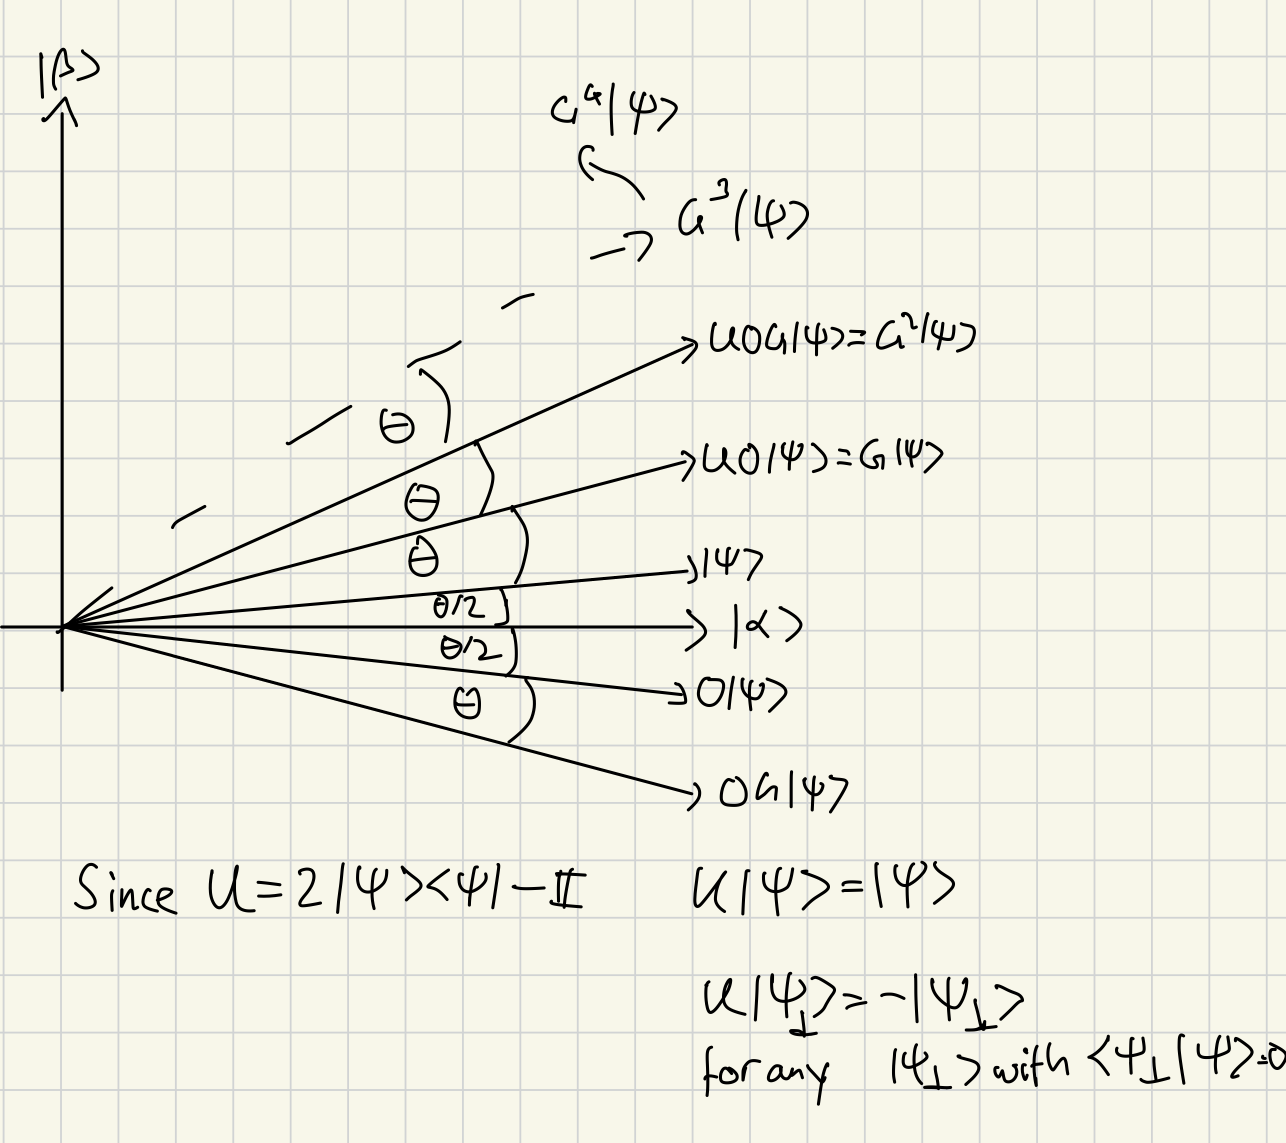 |β>
G⁴|ψ>
G³|ψ>
UOG|ψ>=G²|ψ>
θ
UO|ψ>=G|ψ>
θ
θ
|ψ>
θ/2
|α>
θ/2
O|ψ>
θ
OG|ψ>
Since U=2|ψ><ψ|-𝕀 U|ψ>=|ψ>
U|ψ⊥>=-|ψ⊥>
for any |ψ⊥> with <ψ⊥|ψ>=0